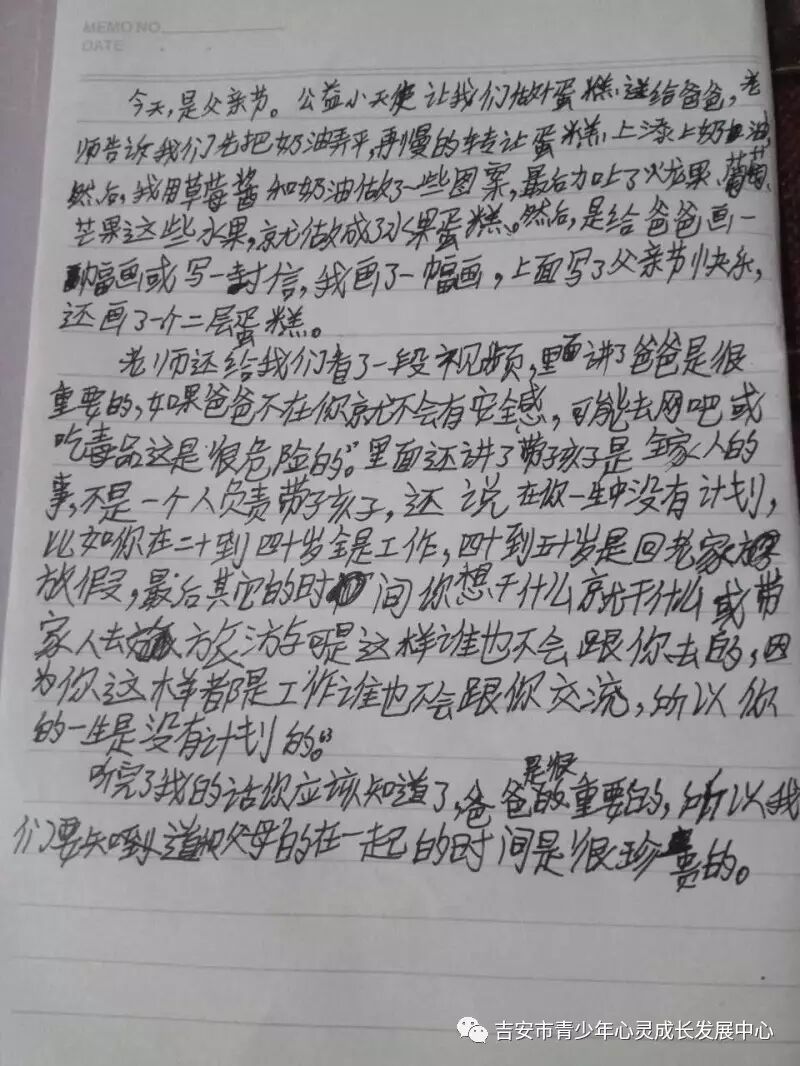 MEMO NO.
DATE
今天,是父亲节。公益小天使让我们做叶蛋糕送给爸爸,老
师告诉我们先把奶油弄平,再慢的转让蛋糕上漆上奶油,
然后,我用草莓酱和奶油做了一些图案,最后加上了火龙果、葡萄、
芒果这些水果,就做成了水果蛋糕。然后,是给爸爸画一
幅画或写一封信,我画了一幅画,上面写了父亲节快乐,
还画了一个二层蛋糕。
老师还给我们看了一段视频,里面讲了爸爸是很
重要的,如果爸爸不在你就不会有安全感,可能去网吧或
吃毒品这是很危险的。里面还讲了带孩子是全家人的
事,不是一个人负责带孩子,还说在你一生中没有计划,
比如你在二十到四十岁全是工作,四十到五十岁是回老家
放假,最后其它的时间你想干什么就干什么或带
家人去旅游可是这样谁也不会跟你去的,因
为你这样都是工作谁也不会跟你交流,所以你
的一生是没有计划的。
听完了我的话你应该知道了,爸爸是很重要的,所以我
们要知道父母的在一起的时间是很珍贵的。
吉安市青少年心灵成长发展中心